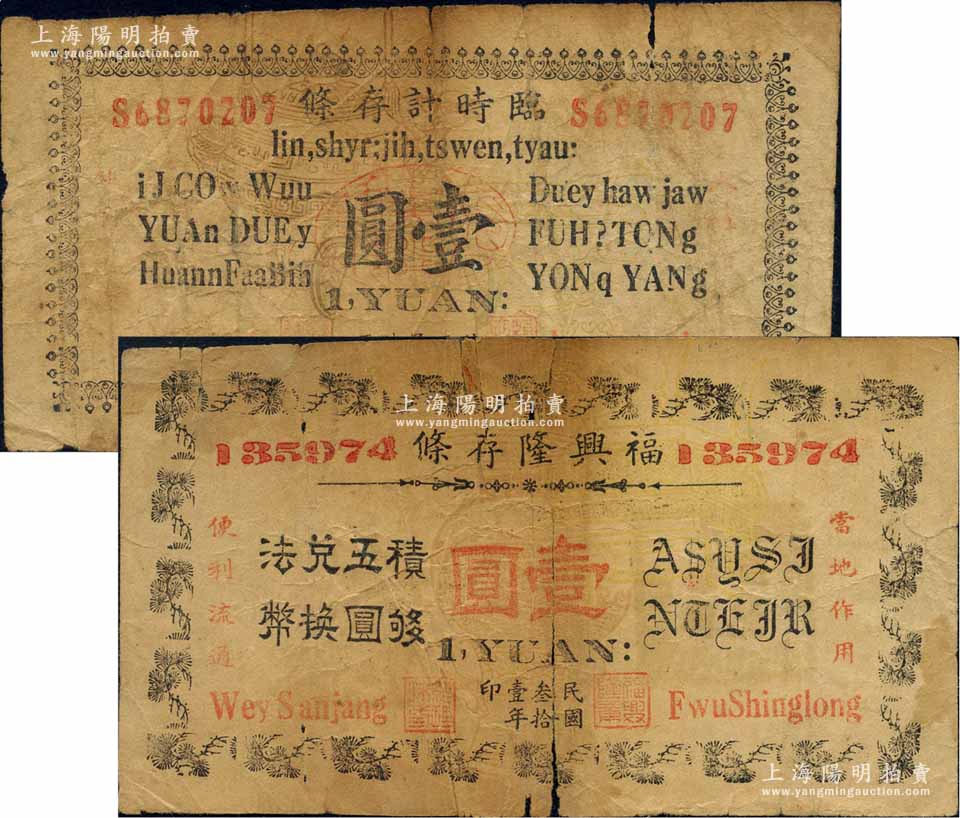 上海陽明拍賣
www.yangmingauction.com
臨時計存條
S6870207
S6870207
lin,shyr;jih,tswen,tyau:
iJ GOw Wuu
YUAn DUEy
HuannFaaBih
壹圓
Duey haw jaw
FUH?TONg
YONq YANg
1,YUAN:
上海陽明拍賣
www.yangmingauction.com
福興隆存條
135974
135974
當地作用
積够五圓兌換法幣
壹圓
ASYSI
NTEJR
便利流通
1,YUAN:
民國叁拾壹年印
Wey Sanjang
FwuShinglong
上海陽明拍賣
www.yangmingauction.com